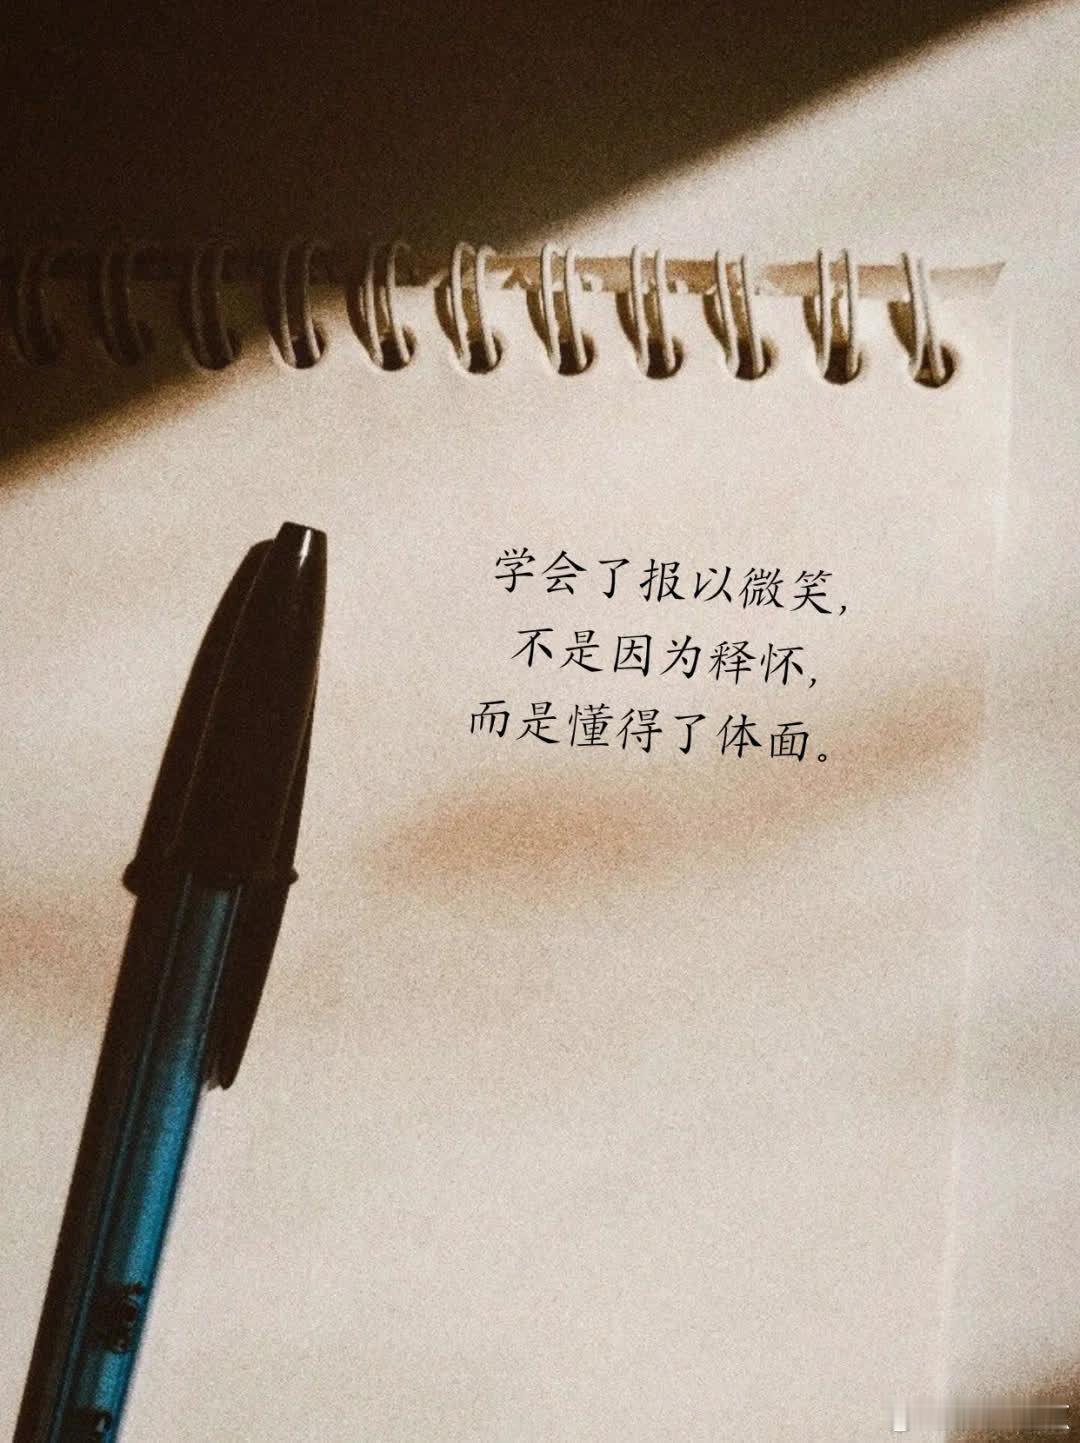 学会了报以微笑,
不是因为释怀,
而是懂得了体面。